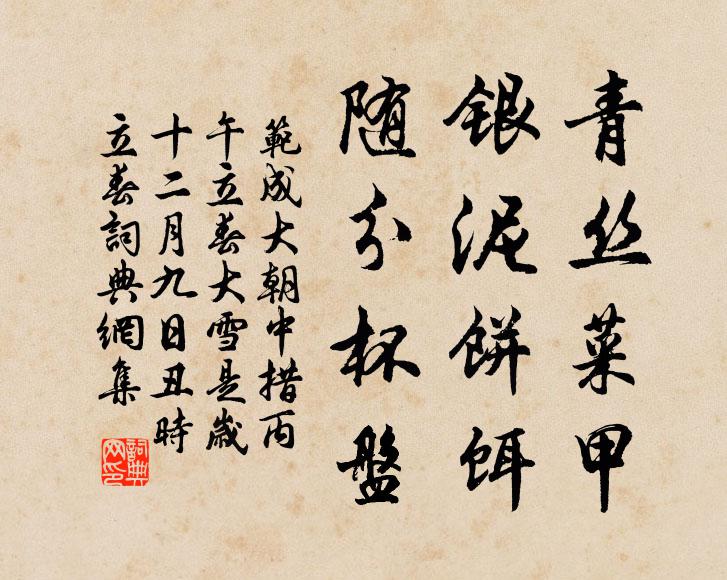 青丝菜甲
银泥餅餌
随分杯盤
範成大朝中措丙
午立春大雪是歲
十二月九日丑時
立春詞典網集
詞典网印